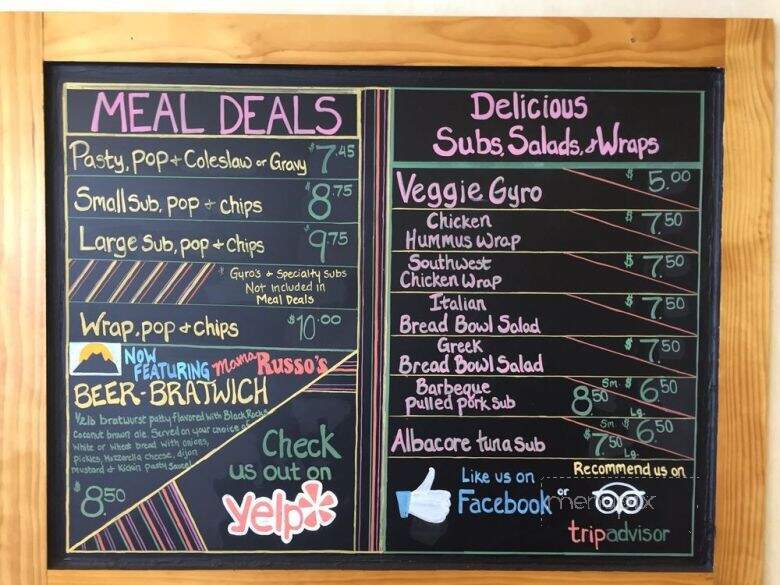 MEAL DEALS
Pasty, Pop + Coleslaw or Gravy $7.45
Small Sub, pop + chips $8.75
Large Sub, pop + chips $9.75
* Gyro's & Specialty Subs
Not Included in
Meal Deals
Wrap, pop + chips $10.00
NOW
FEATURING Mama RUSSO'S
BEER-BRATWICH
1/2 lb bratwurst patty flavored with Black Rocks
Coconut brown ale. Served on your choice of
White or Wheat bread with onions,
pickles, Mozzarella cheese, dijon
mustard & Kickin pasty sauce!
$8.50
Check
us out on
yelp
Delicious
Subs, Salads, & Wraps
Veggie Gyro $5.00
Chicken
Hummus Wrap $7.50
Southwest
Chicken Wrap $7.50
Italian
Bread Bowl Salad $7.50
Greek
Bread Bowl Salad $7.50
Barbeque
Pulled pork Sub
Sm. $6.50
8.50 Lg.
Albacore tuna Sub
Sm. $6.50
$7.50 Lg.
Like us on
Facebook
or
Recommend us on
tripadvisor
menupix